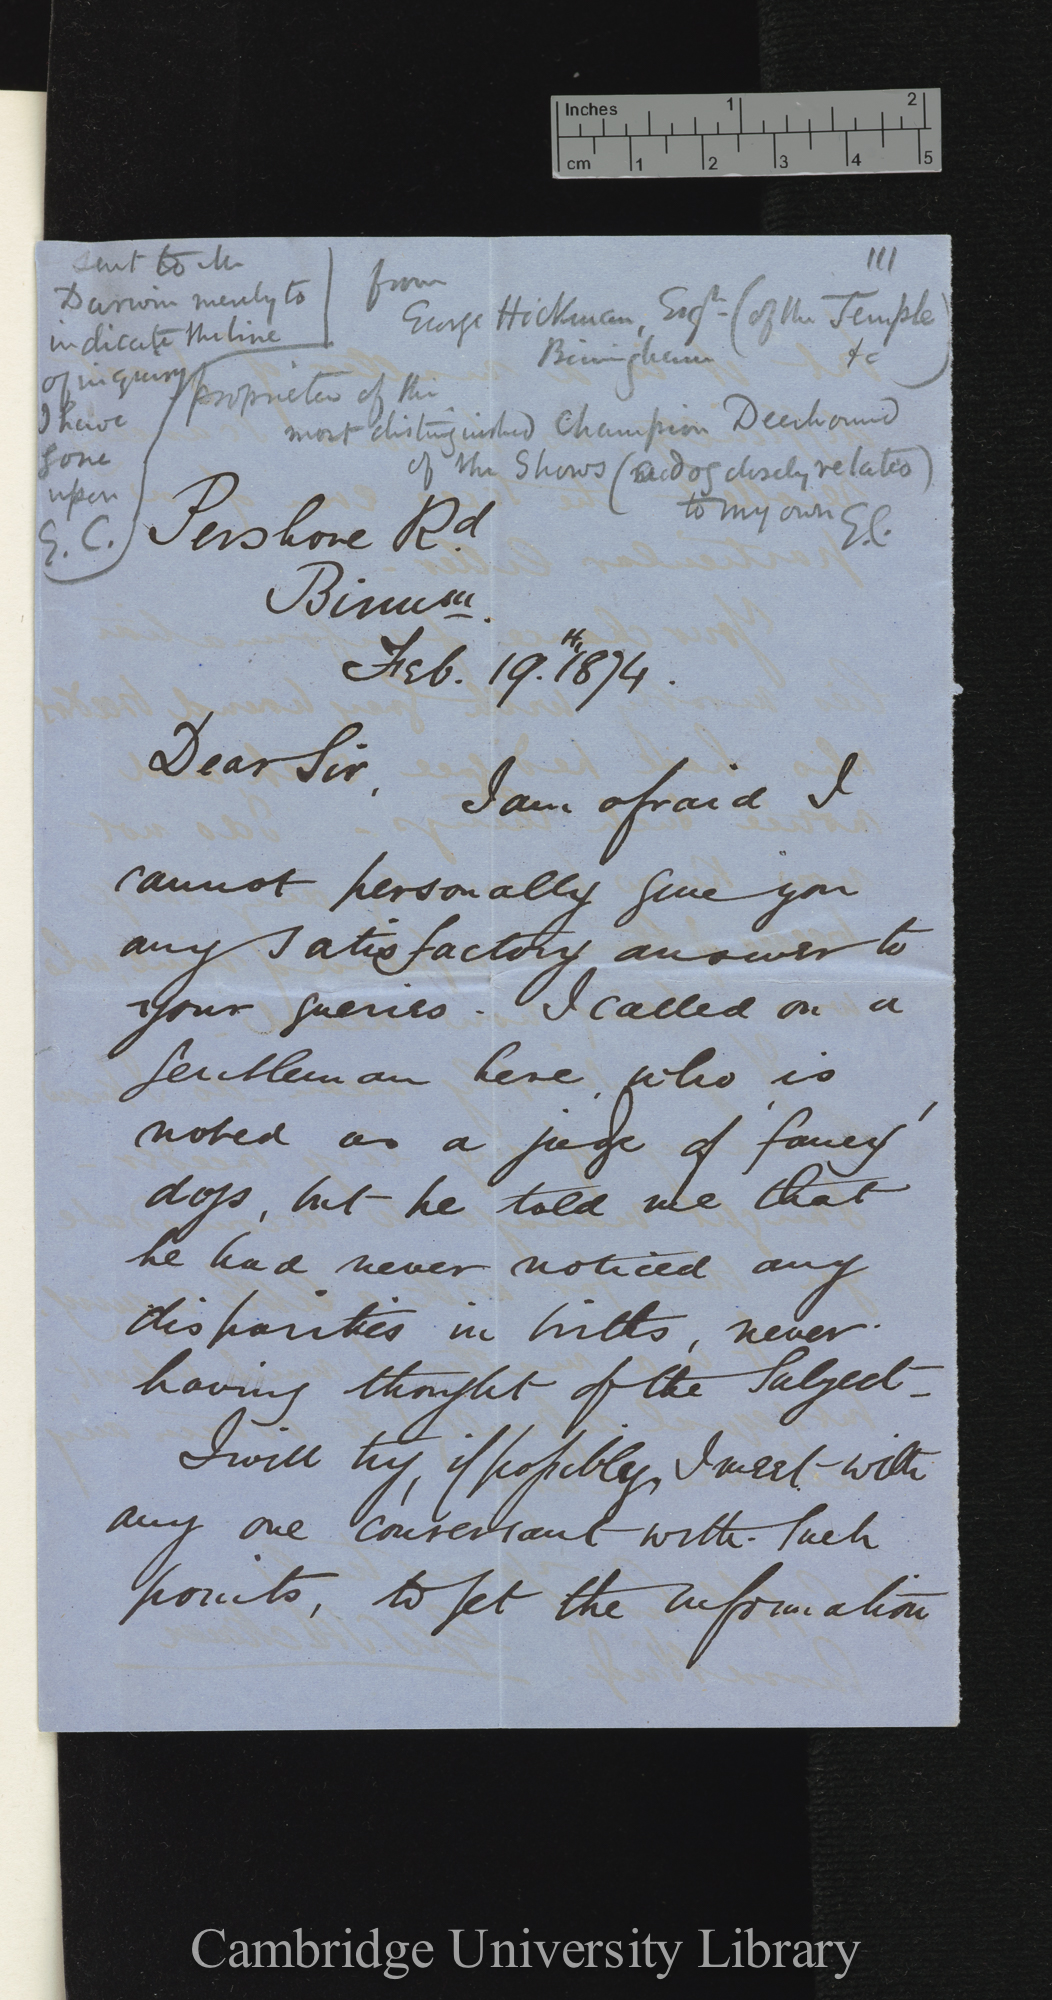 Inches 1 2
cm 1 2 3 4 5
111
sent to Mr
Darwin merely to
indicate the line
of inquiry
I have
gone
upon
G. C.
from
George Hickman, Esqr (of the Temple
Birmingham &c)
proprietor of the
most distinguished Champion Deerhound
of the Shows (a dog closely related
to my own G.C.)
Pershore Rd
Birmm.
Feb. 19.th 1874.
Dear Sir,
I am afraid I
cannot personally give you
any satisfactory answer to
your queries. I called on a
gentleman here, who is
noted as a judge of 'fancy'
dogs, but he told me that
he had never noticed any
disparities in births, never
having thought of the Subject_
I will try, if possible, I meet with
any one conversant with such
points, to get the information
Cambridge University Library